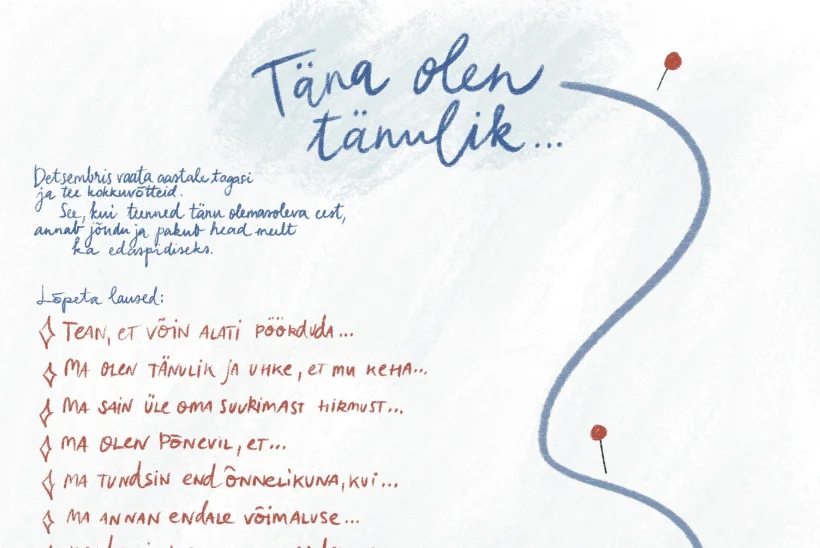 Täna olen
tänulik...
Detsembris vaata aastale tagasi
ja tee kokkuvõtteid.
See, kui tunned tänu olemasoleva eest,
annab jõudu ja pakub head meelt
ka edaspidiseks.
Lõpeta laused:
TEAN, ET VÕIN ALATI PÖÖRDUDA...
MA OLEN TÄNULIK JA UHKE, ET MU KEHA...
MA SAIN ÜLE OMA SUURIMAST HIRMUST...
MA OLEN PÕNEVIL, ET...
MA TUNDSIN END ÕNNELIKUNA, KUI...
MA ANNAN ENDALE VÕIMALUSE...